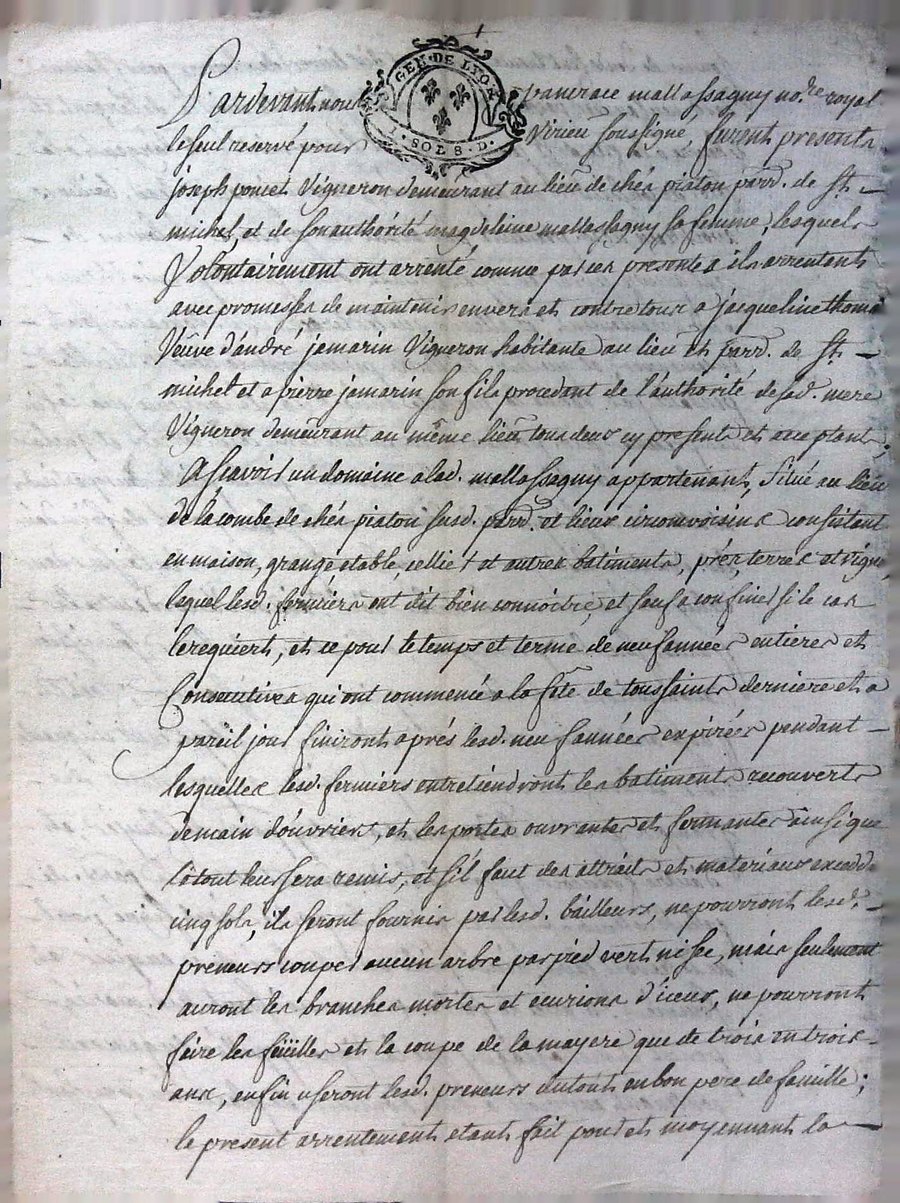 GEN. DE LYON
SOLS. D.
Pardevant nous pancrace mallassagny no.re royal
le seul reservé pour Virieu soussigné, furent presents
joseph poncet Vigneron demeurant au lieu de chés piaton parr. de St.
michel, et de son authórité magdeleine mallassagny sa femme, lesquels
Volontairement ont arrenté comme par ces presentes ils arrentent
avec promesses de maintenir envers et contre tous a jacqueline thoma
Veuve d'andré jamarin Vigneron habitante au lieu et parr. de St.
michel et a pierre jamarin son fils procedant de l'authorité de sad. mere
Vigneron demeurant au même lieu tous deux cy presents et acceptants,
Ascavoir un domaine a lad. mallassagny appartenant, situé au lieu
de la combe de chés piaton susd. parr. et lieux circonvoisins consistant
en maison, grange etable, cellier et autres batiments, prés, terres et vigne,
lequel lesd. fermiers ont dit bien connoitre, et sauf a confiner si le cas
le requiert, et ce pour le temps et terme de neuf années entieres et
Consecutives qui ont commencé a la fête de toussaints derniere et a
pareil jour finiront aprés lesd. neuf années expirées pendant
lesquelles lesd. fermiers entretiendront les batiments recouverts
de main d'ouvriers, et les portes ouvrantes et fermantes ainsi que
le tout leur sera remis, et s'il faut des attraits et materiaux excedds
cinq sols, ils seront fournis par lesd. bailleurs, ne pourront lesd.
preneurs couper aucun arbre par pied vert ni sec, mais seulement
auront les branches mortes et d'iceux, ne pourront
faire les feüilles et la coupe de la mayere que de trois en trois
ans, enfin useront lesd. preneurs du tout en bon pere de famille;
le present arrentement etant fait pour et moyennant la